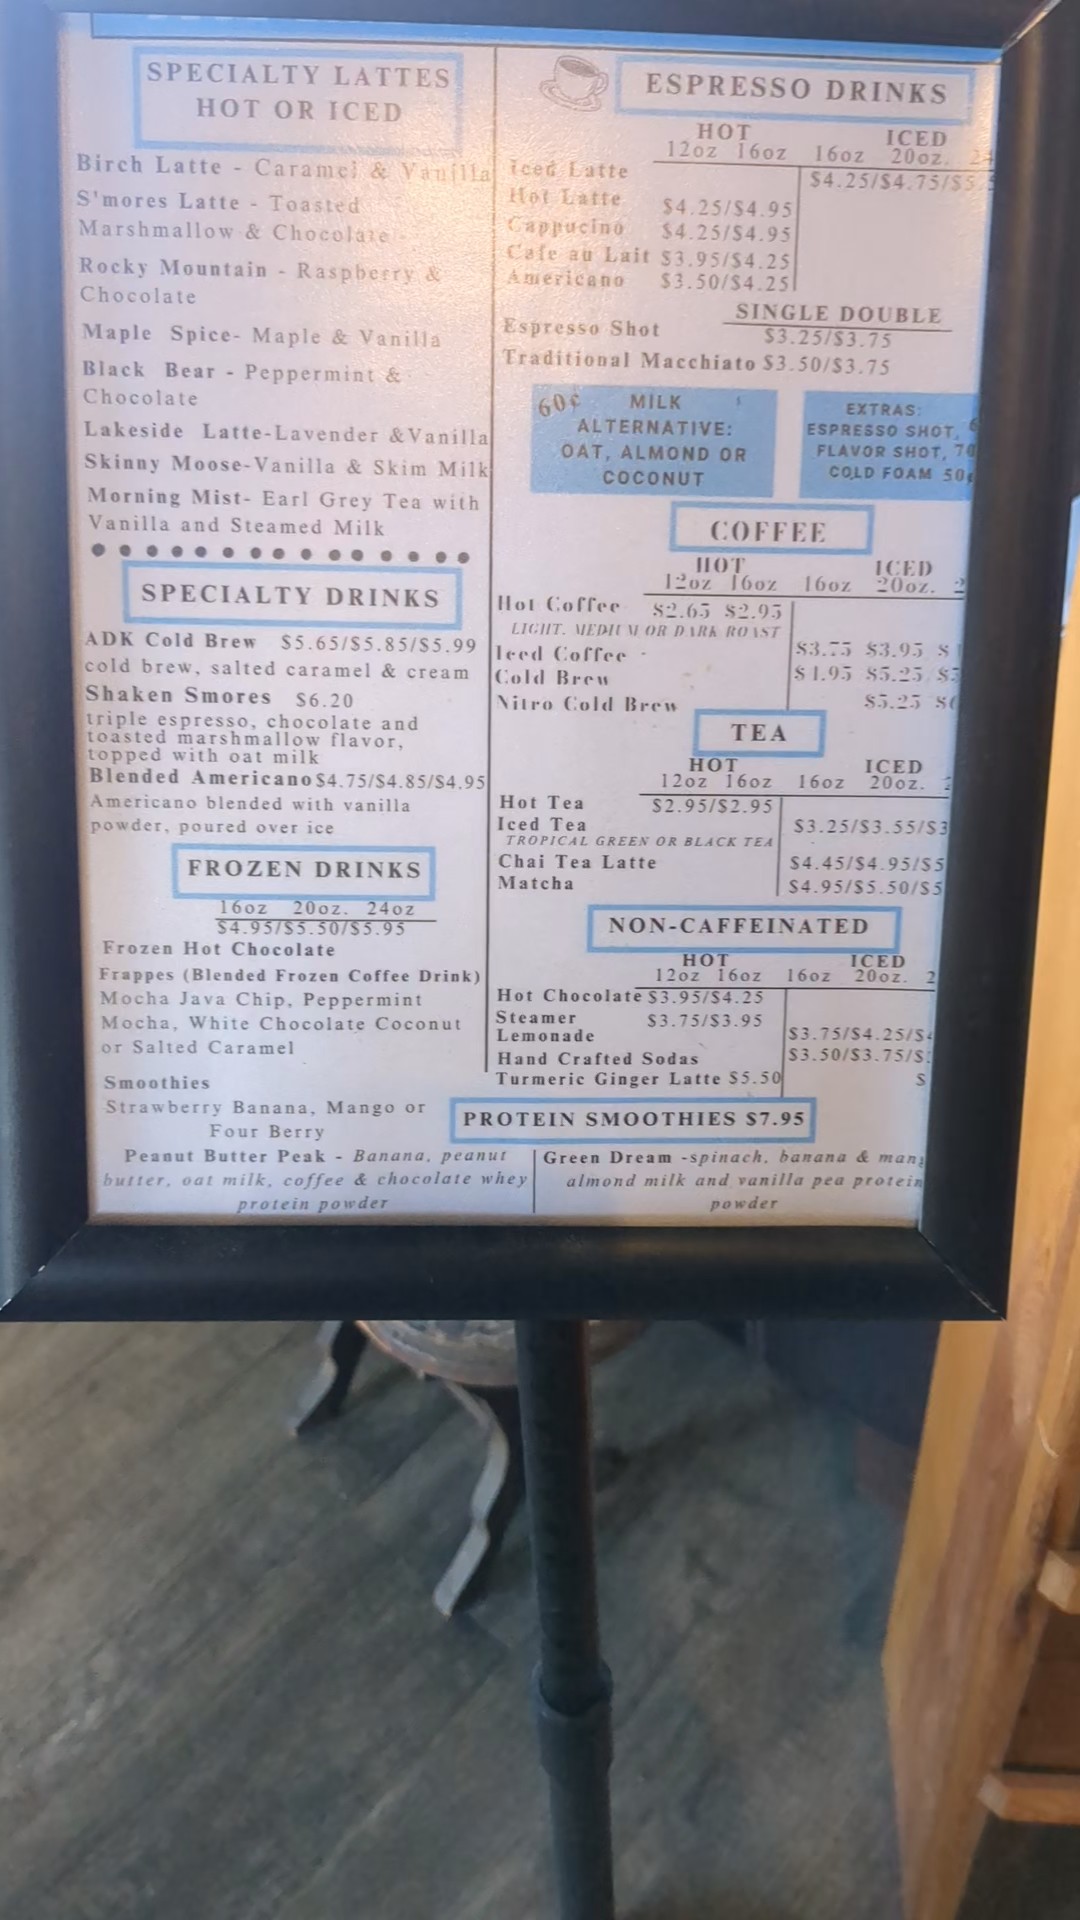 SPECIALTY LATTES
HOT OR ICED
Birch Latte - Caramel & Vanilla
S'mores Latte - Toasted
Marshmallow & Chocolate
Rocky Mountain - Raspberry &
Chocolate
Maple Spice- Maple & Vanilla
Black Bear - Peppermint &
Chocolate
Lakeside Latte-Lavender &Vanilla
Skinny Moose-Vanilla & Skim Milk
Morning Mist- Earl Grey Tea with
Vanilla and Steamed Milk
SPECIALTY DRINKS
ADK Cold Brew $5.65/$5.85/$5.99
cold brew, salted caramel & cream
Shaken Smores $6.20
triple espresso, chocolate and
toasted marshmallow flavor,
topped with oat milk
Blended Americano $4.75/$4.85/$4.95
Americano blended with vanilla
powder, poured over ice
FROZEN DRINKS
16oz 20oz. 24oz
$4.95/$5.50/$5.95
Frozen Hot Chocolate
Frappes (Blended Frozen Coffee Drink)
Mocha Java Chip, Peppermint
Mocha, White Chocolate Coconut
or Salted Caramel
Smoothies
Strawberry Banana, Mango or
Four Berry
ESPRESSO DRINKS
HOT ICED
12oz 16oz 16oz 20oz.
Iced Latte $4.25/$4.75/$5.
Hot Latte $4.25/$4.95
Cappucino $4.25/$4.95
Cafe au Lait $3.95/$4.25
Americano $3.50/$4.25
SINGLE DOUBLE
Espresso Shot $3.25/$3.75
Traditional Macchiato $3.50/$3.75
60¢ MILK
ALTERNATIVE:
OAT, ALMOND OR
COCONUT
EXTRAS:
ESPRESSO SHOT,
FLAVOR SHOT, 70
COLD FOAM 50¢
COFFEE
HOT ICED
12oz 16oz 16oz 20oz. 2
Hot Coffee $2.65 $2.95
LIGHT, MEDIUM OR DARK ROAST
Iced Coffee - $3.75 $3.95 $
Cold Brew $4.95 $5.25 $5
Nitro Cold Brew $5.25
TEA
HOT ICED
12oz 16oz 16oz 20oz. 2
Hot Tea $2.95/$2.95
Iced Tea $3.25/$3.55/$3
TROPICAL GREEN OR BLACK TEA
Chai Tea Latte $4.45/$4.95/$5
Matcha $4.95/$5.50/$5
NON-CAFFEINATED
HOT ICED
12oz 16oz 16oz 20oz. 2
Hot Chocolate $3.95/$4.25
Steamer $3.75/$3.95
Lemonade $3.75/$4.25/$4
Hand Crafted Sodas $3.50/$3.75/$
Turmeric Ginger Latte $5.50 $
PROTEIN SMOOTHIES $7.95
Peanut Butter Peak - Banana, peanut
butter, oat milk, coffee & chocolate whey
protein powder
Green Dream -spinach, banana & mang
almond milk and vanilla pea protein
powder